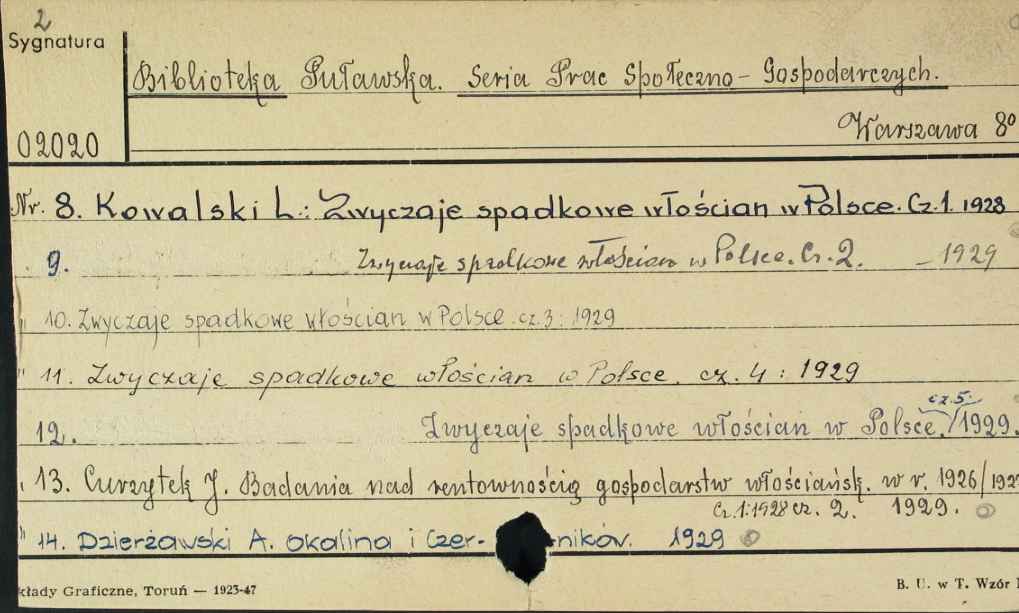 2
Sygnatura
Biblioteka Puławska. Seria Prac Społeczno-Gospodarczych.
02020
Warszawa 8°
Nr. 8. Kowalski L.: Zwyczaje spadkowe włościan w Polsce. Cz. 1. 1928
9. Zwyczaje spadkowe włościan w Polsce. Cz. 2. - 1929
10. Zwyczaje spadkowe włościan w Polsce. cz. 3: 1929
" 11. Zwyczaje spadkowe włościan w Polsce. cz. 4: 1929
cz. 5.
12. Zwyczaje spadkowe włościan w Polsce. / 1929.
13. Curzytek J. Badania nad rentownością gospodarstw włościańsk. w r. 1926/192
Cz. 1: 1928 cz. 2. 1929.
" 14. Dzierżawski A. okalina i Czer- ników. 1929
kłady Graficzne, Toruń — 1923-47
B. U. w T. Wzór